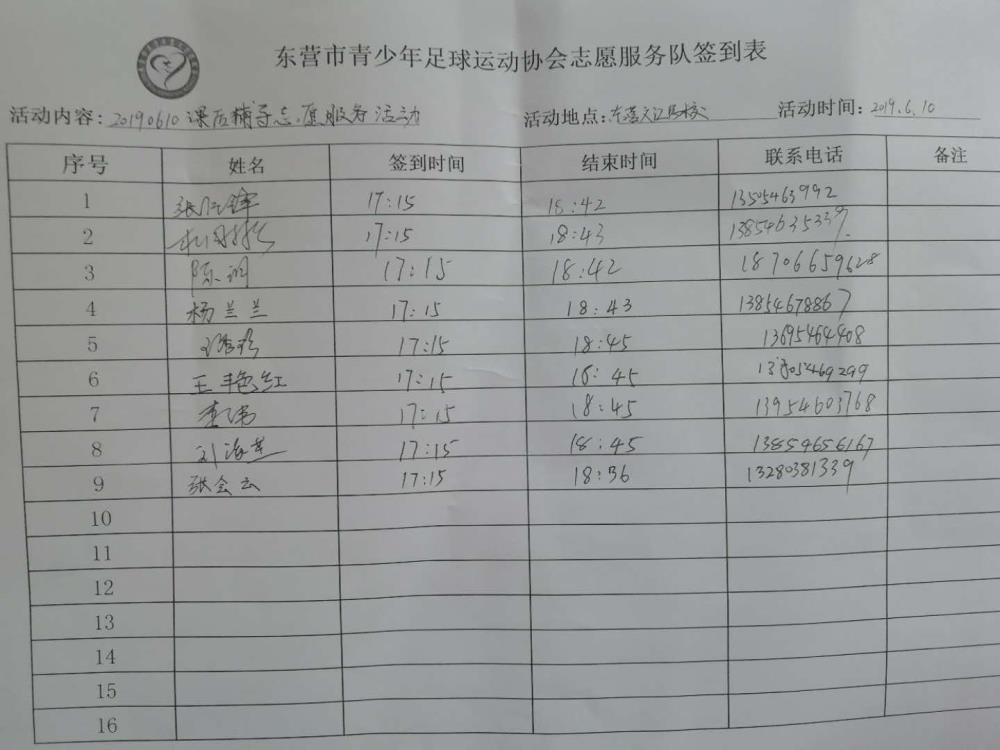 东营市青少年足球运动协会志愿服务队签到表
活动内容：20190610课后辅导志愿服务活动 活动地点： 活动时间：2019.6.10
序号 姓名 签到时间 结束时间 联系电话 备注
1 17:15 18:42 13505463992
2 17:15 18:43 13854635339
3 陈润 17:15 18:42 18706659628
4 杨兰兰 17:15 18:43 13854678867
5 17:15 18:45 13695464408
6 王艳红 17:15 18:45
7 李伟 17:15 18:45 13954603768
8 刘海燕 17:15 18:45 13854656167
9 张会云 17:15 18:36 13280381339
10
11
12
13
14
15
16